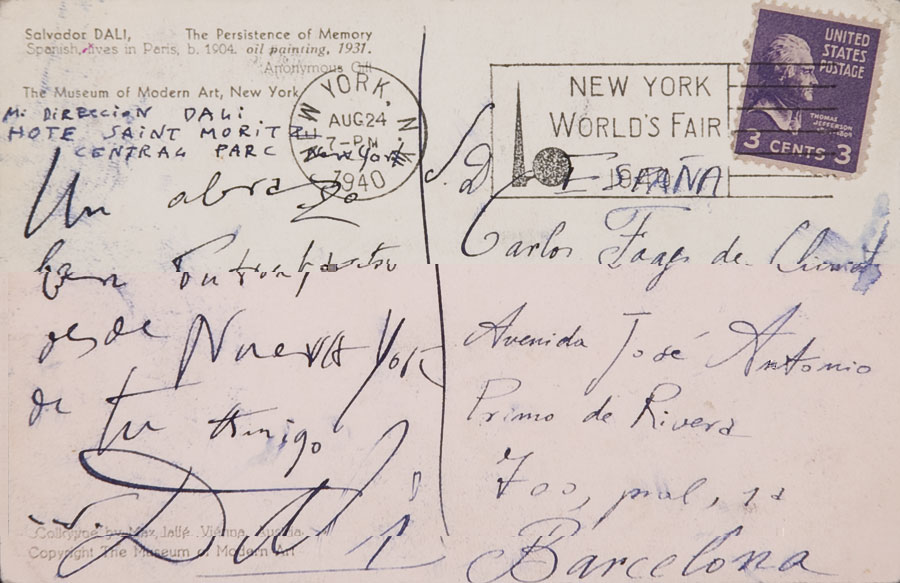 Salvador DALI, The Persistence of Memory
Spanish, lives in Paris, b. 1904. oil painting, 1931.
Anonymous Gift
The Museum of Modern Art, New York
Mi DIRECCION DALI
HOTE SAINT MORITZ
CENTRAL PARC New York
Un abrazo
desde Nueva York
de tu Amigo
Dalí
Collotype by Max Jaffé, Vienna, Austria
Copyright The Museum of Modern Art
NEW YORK, N.Y.
AUG 24
7-PM
1940
NEW YORK
WORLD'S FAIR
1940
UNITED
STATES
POSTAGE
THOMAS
JEFFERSON
3 CENTS 3
S.D.
ESPAÑA
Carlos de
Avenida José Antonio
Primo de Rivera
700, pral, 1a
Barcelona